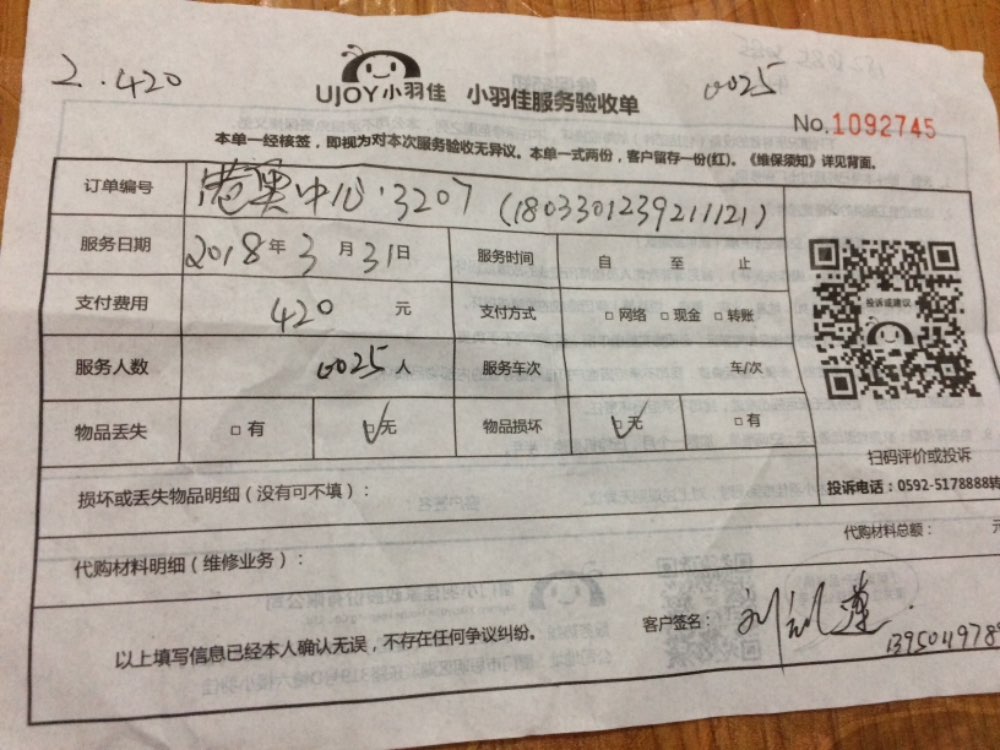 2.420
UJOY小羽佳 小羽佳服务验收单
0025
No.1092745
本单一经核签，即视为对本次服务验收无异议。本单一式两份，客户留存一份(红)。《维保须知》详见背面。
订单编号 港奥中心·3207 (180330123921112​1)
服务日期 2018年3月31日 服务时间 自 至 止
支付费用 420 元 支付方式 □网络 □现金 □转账
投诉或建议
服务人数 0025人 服务车次 车/次
物品丢失 □有 ☑无 物品损坏 ☑无 □有
扫码评价或投诉
投诉电话：0592-5178888转
损坏或丢失物品明细（没有可不填）：
代购材料总额：
代购材料明细（维修业务）：
客户签名：
以上填写信息已经本人确认无误，不存在任何争议纠纷。